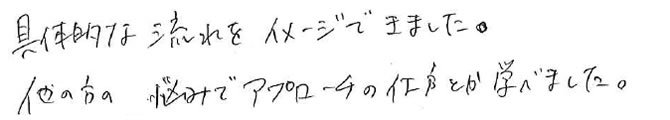 具体的な流れをイメージできました。
他の方の悩みでアプローチの仕方とか学べました。